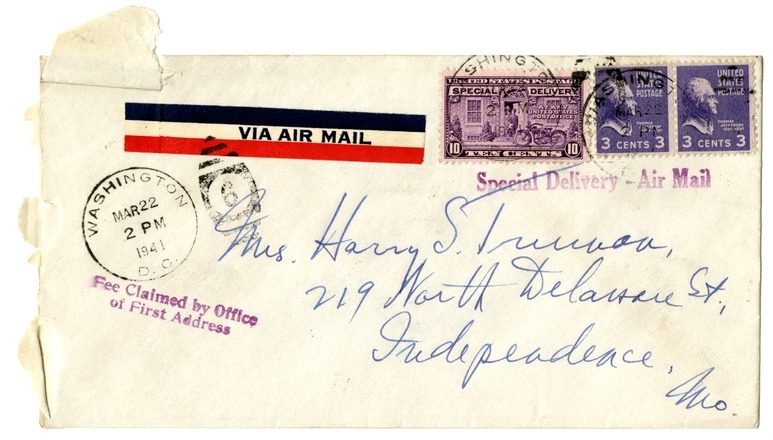 VIA AIR MAIL
UNITED STATES POSTAGE
SPECIAL DELIVERY
AT ANY
UNITED STATES
POST OFFICE
10 TEN CENTS 10
UNITED
STATES
POSTAGE
THOMAS
JEFFERSON
3 CENTS 3
UNITED
STATES
POSTAGE
THOMAS
JEFFERSON
3 CENTS 3
WASHINGTON
WASHINGTON
Special Delivery - Air Mail
WASHINGTON
MAR 22
2 PM
1941
D. C.
6
Fee Claimed by Office
of First Address
Mrs. Harry S. Truman,
219 North Delaware St.,
Independence,
Mo.